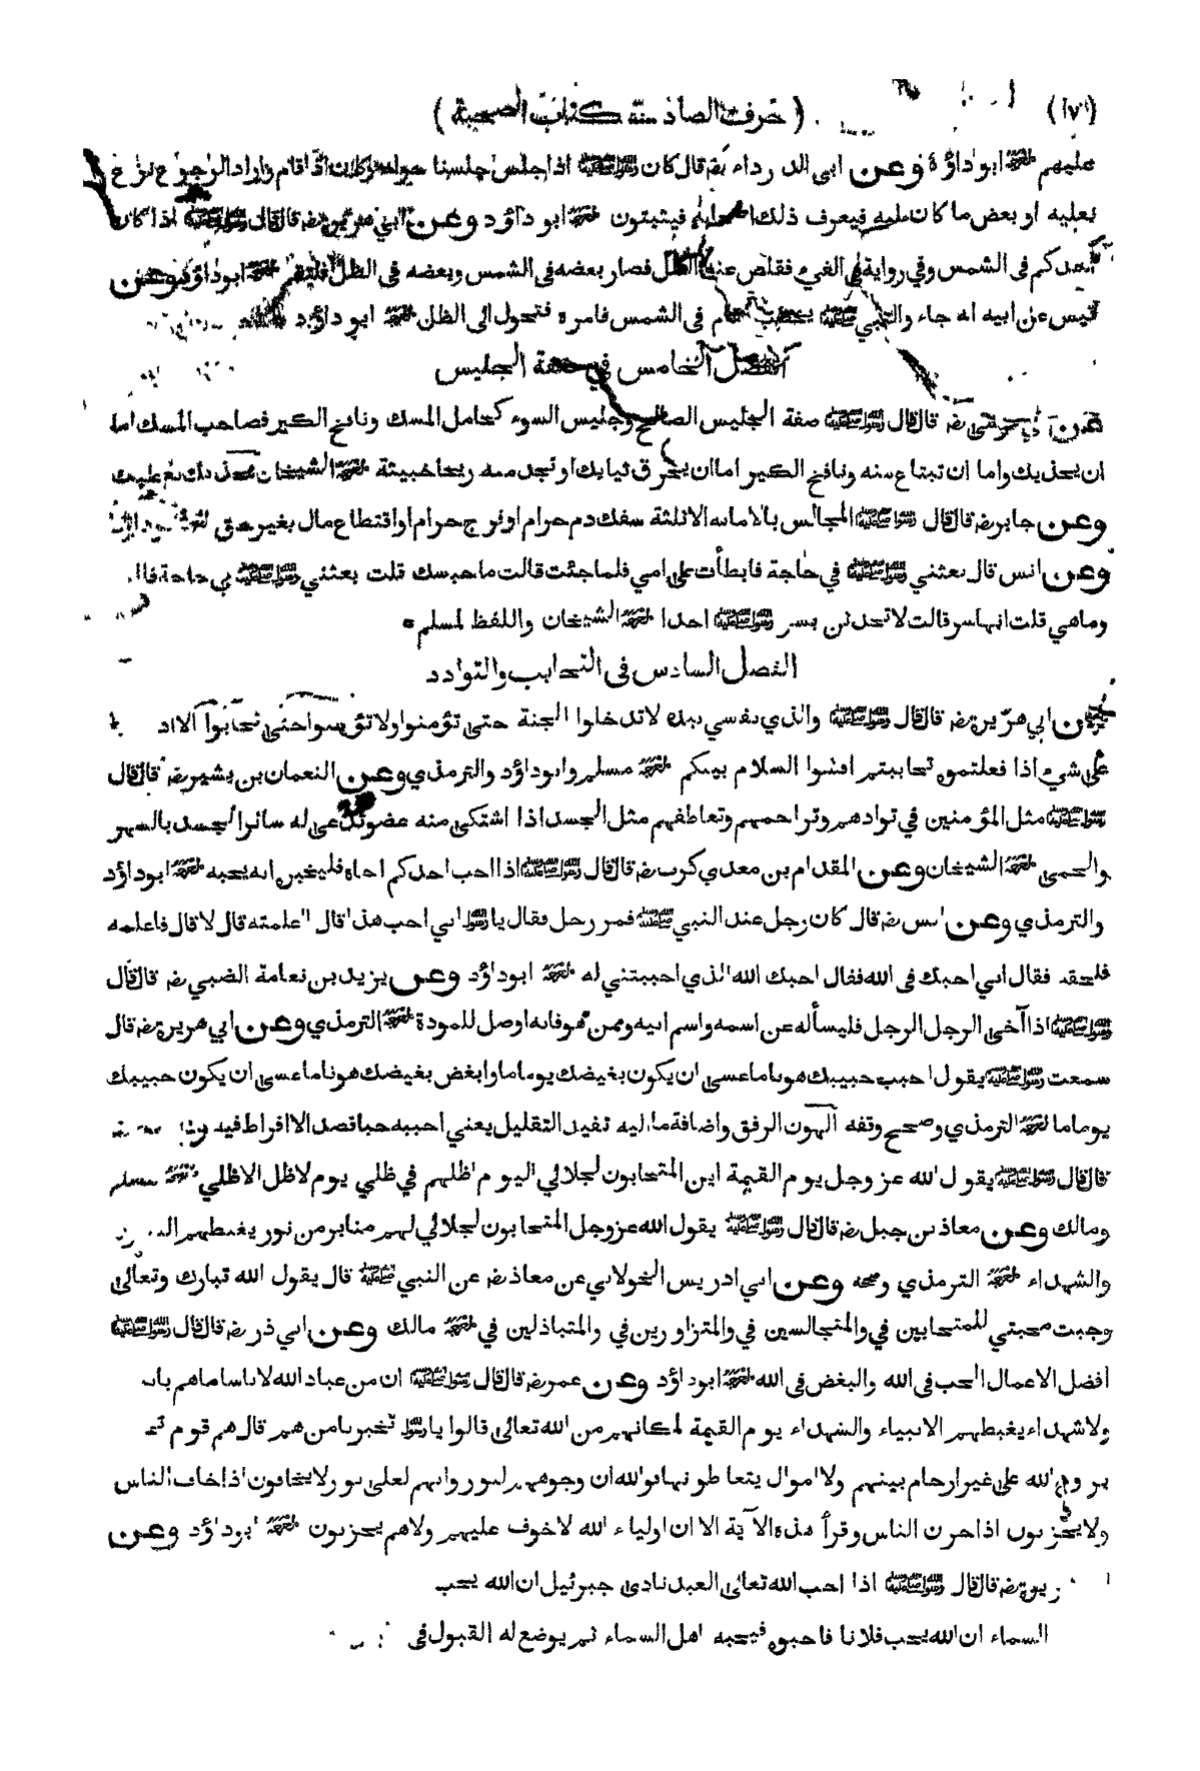 (١٧١) ( حرف الصاد منه كتاب الصحبة )
عليهم اخرجه ابو داؤد وعن ابى الدرداء رضہ قال كان رسول الله صلى الله عليه وسلم اذا جلس جلسنا حوله وكان اذا قام واراد الرجوع نزع
نعليه او بعض ما كان عليه فيعرف ذلك اصحابه فيثبتون اخرجه ابو داؤد وعن ابي هريرة رضہ قال قال رسول الله صلى الله عليه وسلم اذا كان
احدكم فى الشمس وفي رواية في الفيء فقلص عنه الظل فصار بعضه فى الشمس وبعضه فى الظل فليقم اخرجه ابو داؤد وعن
قيس عن ابيه انه جاء والنبي صلى الله عليه وسلم يخطب فقام فى الشمس فامره فتحول الى الظل اخرجه ابو داؤد
الفصل الخامس في صفة الجليس
عن ابي موسى رضہ قال قال رسول الله صلى الله عليه وسلم صفة الجليس الصالح وجليس السوء كحامل المسك ونافخ الكير فصاحب المسك اما
ان يحذيك واما ان تبتاع منه ونافخ الكير اما ان يحرق ثيابك او تجد منه ريحا خبيثة اخرجه الشيخان يحذيك يعطيك
وعن جابر رضہ قال قال رسول الله صلى الله عليه وسلم المجالس بالامانه الا ثلثة سفك دم حرام او فرج حرام او اقتطاع مال بغير حق اخرجه ابو داؤد
وعن انس قال بعثني رسول الله صلى الله عليه وسلم في حاجة فابطأت على امي فلما جئت قالت ما حبسك قلت بعثني رسول الله صلى الله عليه وسلم في حاجة قالت
وما هي قلت انها سر قالت لا تحدثن بسر رسول الله صلى الله عليه وسلم احدا اخرجه الشيخان واللفظ لمسلم
الفصل السادس فى التحابب والتوادد
عن ابي هريرة رضہ قال قال رسول الله صلى الله عليه وسلم والذي نفسي بيده لا تدخلوا الجنة حتى تؤمنوا ولا تؤمنوا حتى تحابوا الا اد
على شيء اذا فعلتموه تحاببتم افشوا السلام بينكم اخرجه مسلم وابو داؤد والترمذي وعن النعمان بن بشير رضہ قال قال
رسول الله صلى الله عليه وسلم مثل المؤمنين في توادهم وتراحمهم وتعاطفهم مثل الجسد اذا اشتكى منه عضو تداعى له سائر الجسد بالسهر
والحمى اخرجه الشيخان وعن المقدام بن معدي كرب رضہ قال قال رسول الله صلى الله عليه وسلم اذا احب احدكم اخاه فليخبره انه يحبه اخرجه ابو داؤد
والترمذي وعن انس رضہ قال كان رجل عند النبي صلى الله عليه وسلم فمر رجل فقال يا رسول الله اني احب هذا قال اعلمته قال لا قال فاعلمه
فلحقه فقال اني احبك فى الله فقال احبك الله الذي احببتني له اخرجه ابو داؤد وعن يزيد بن نعامة الضبي رضہ قال قال
رسول الله صلى الله عليه وسلم اذا آخى الرجل الرجل فليسأله عن اسمه واسم ابيه وممن هو فانه اوصل للمودة اخرجه الترمذي وعن ابي هريرة رضہ قال
سمعت رسول الله صلى الله عليه وسلم يقول احبب حبيبك هونا ما عسى ان يكون بغيضك يوما ما وابغض بغيضك هونا ما عسى ان يكون حبيبك
يوما ما اخرجه الترمذي وصحح وقفه الهون الرفق واضافة ما اليه تفيد التقليل يعني احببه حبا قصد الا افراط فيه
قال قال رسول الله صلى الله عليه وسلم يقول الله عز وجل يوم القيمة اين المتحابون لجلالي اليوم اظلهم في ظلي يوم لا ظل الا ظلي اخرجه مسلم
ومالك وعن معاذ بن جبل رضہ قال قال رسول الله صلى الله عليه وسلم يقول الله عز وجل المتحابون لجلالي لهم منابر من نور يغبطهم
والشهداء اخرجه الترمذي وصححه وعن ابي ادريس الخولاني عن معاذ رضہ عن النبي صلى الله عليه وسلم قال يقول الله تبارك وتعالى
وجبت محبتي للمتحابين في والمتجالسين في والمتزاورين في والمتباذلين في اخرجه مالك وعن ابي ذر رضہ قال قال رسول الله صلى الله عليه وسلم
افضل الاعمال الحب فى الله والبغض فى الله اخرجه ابو داؤد وعن عمر رضہ قال قال رسول الله صلى الله عليه وسلم ان من عباد الله لاناسا ما هم بانب
ولا شهداء يغبطهم الانبياء والشهداء يوم القيمة لمكانهم من الله تعالى قالوا يا رسول الله تخبرنا من هم قال هم قوم تح
بروح الله على غير ارحام بينهم ولا اموال يتعاطونها فوالله ان وجوههم لنور وانهم لعلى نور ولا يخافون اذا خاف الناس
ولا يحزنون اذا حزن الناس وقرأ هذه الآية الا ان اولياء الله لا خوف عليهم ولا هم يحزنون اخرجه ابو داؤد وعن
ريرة رضہ قال قال رسول الله صلى الله عليه وسلم اذا احب الله تعالى العبد نادى جبرئيل ان الله يحب
السماء ان الله يحب فلانا فاحبوه فيحبه اهل السماء ثم يوضع له القبول فى